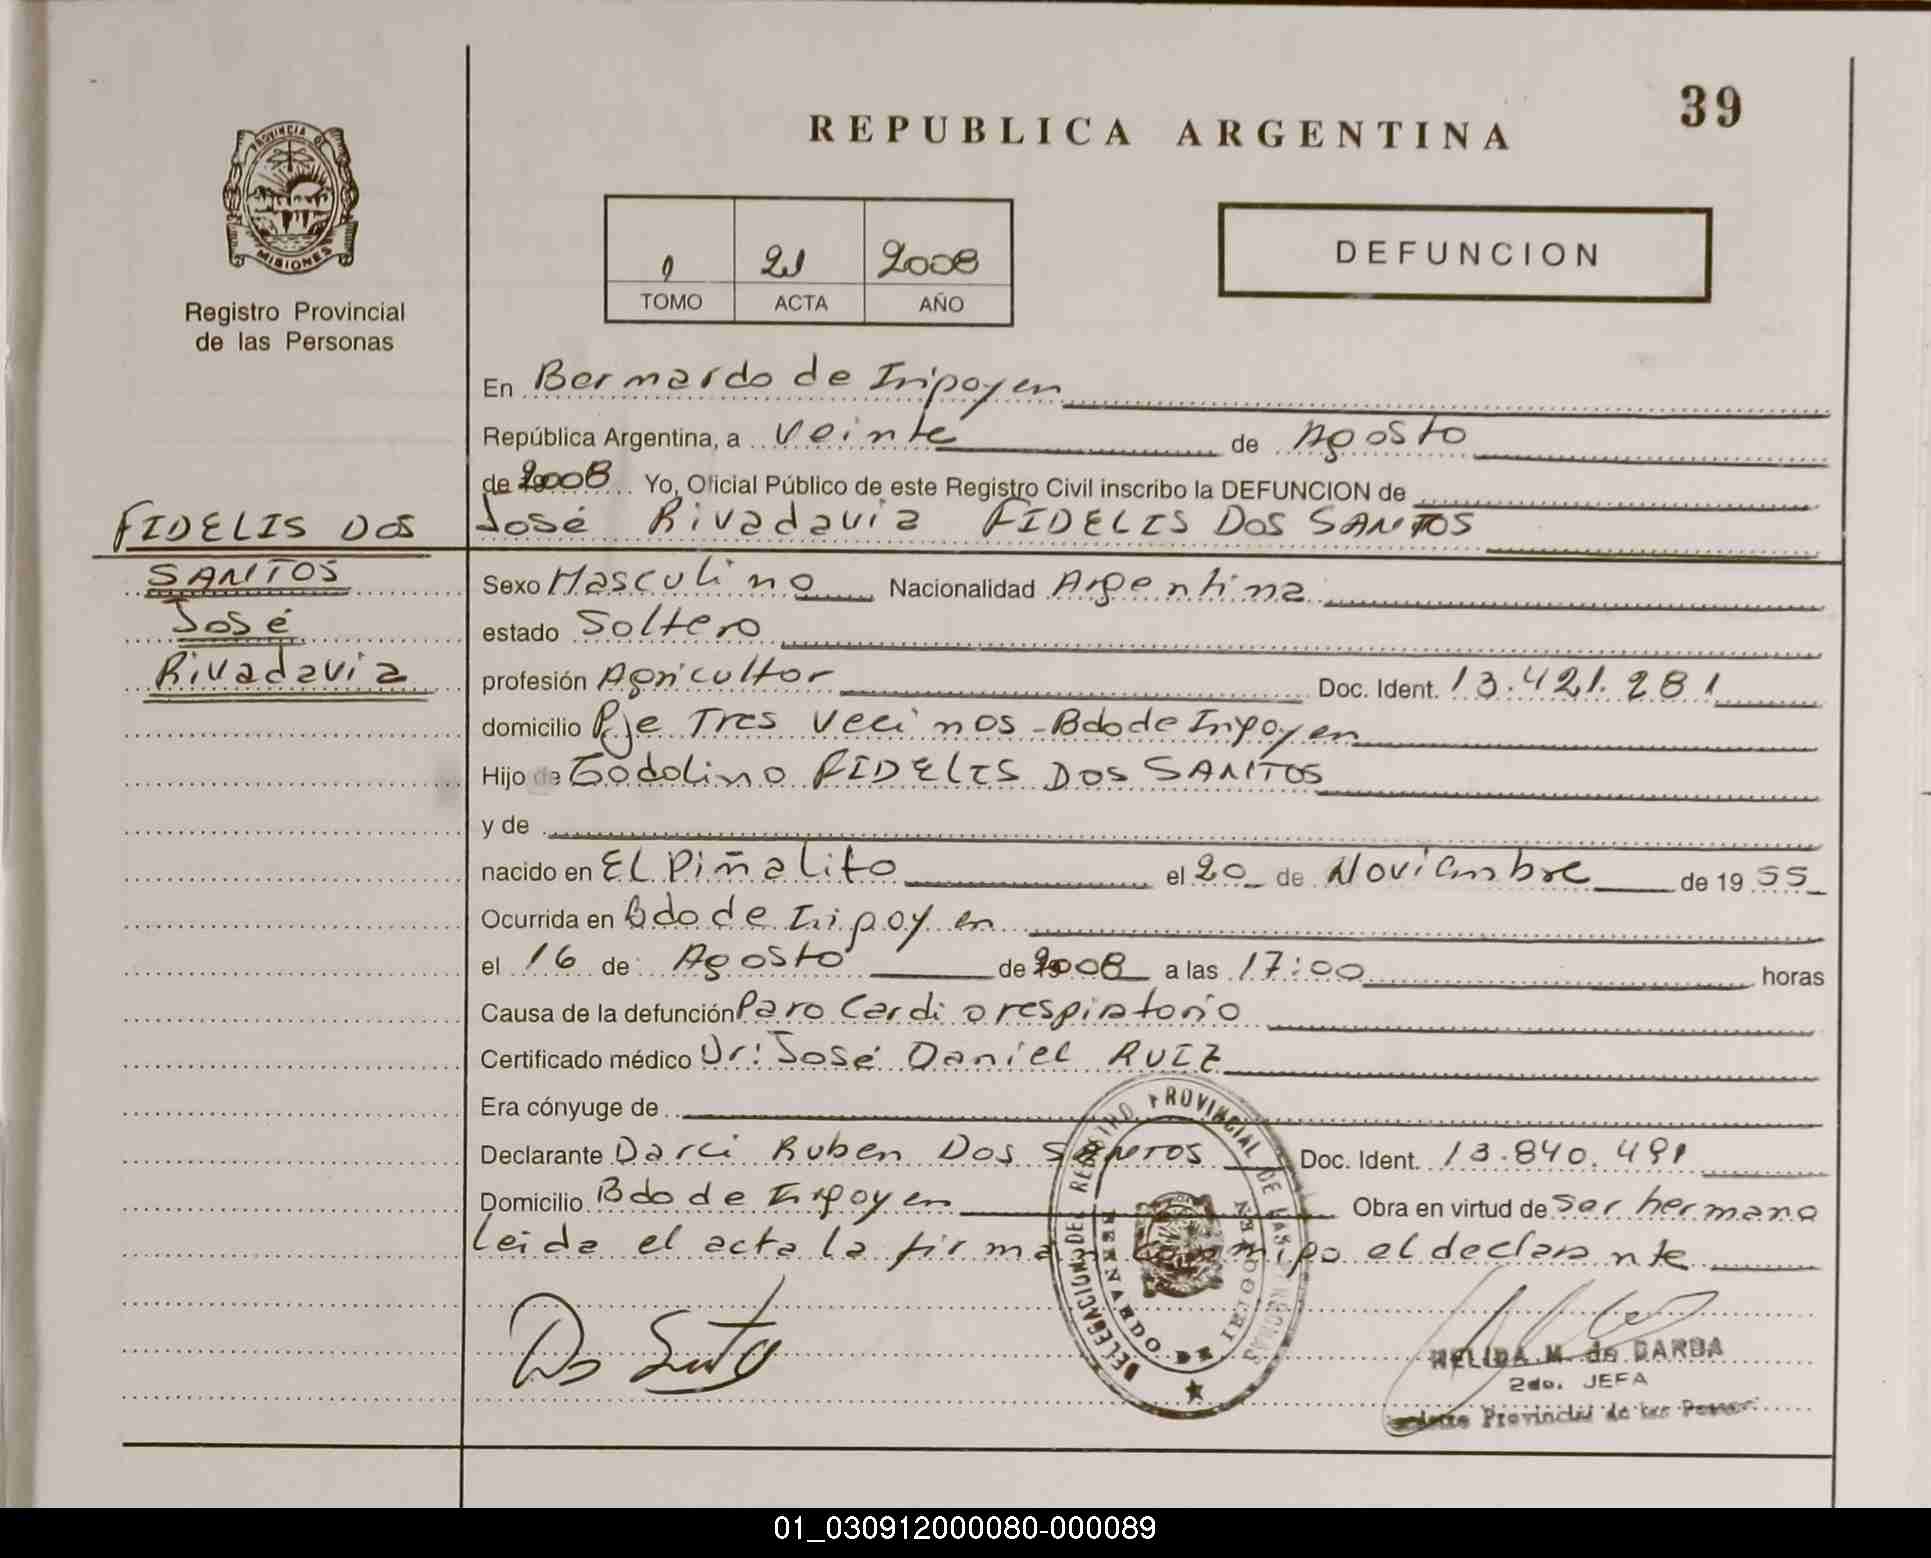 39
REPUBLICA ARGENTINA
PROVINCIA DE
MISIONES
Registro Provincial
de las Personas
1 21 2008
TOMO ACTA AÑO
DEFUNCION
En Bernardo de Irigoyen
República Argentina, a Veinte de Agosto
de 2008 Yo, Oficial Público de este Registro Civil inscribo la DEFUNCION de
José Rivadavia FIDELIS DOS SANTOS
FIDELIS DOS
SANTOS
José
Rivadavia
Sexo Masculino Nacionalidad Argentina
estado Soltero
profesión Agricultor Doc. Ident. 13.421.281
domicilio Pje Tres Vecinos - Bdo de Irigoyen
Hijo de Godolino FIDELIS DOS SANTOS
y de
nacido en EL Piñalito el 20 de Noviembre de 1955
Ocurrida en Bdo de Irigoyen
el 16 de Agosto de 2008 a las 17:00 horas
Causa de la defunción Paro Cardiorespiratorio
Certificado médico Dr: José Daniel RUIZ
Era cónyuge de
Declarante Darci Ruben DOS SANTOS Doc. Ident. 13.840.491
Domicilio Bdo de Irigoyen Obra en virtud de ser hermano
leida el acta la firma conmigo el declarante
DELEGACION DEL REGISTRO PROVINCIAL DE LAS PERSONAS
BERNARDO DE IRIGOYEN
Dos Santos
NELIDA M. de DARDA
2do. JEFA
Provincial de las
01_030912000080-000089